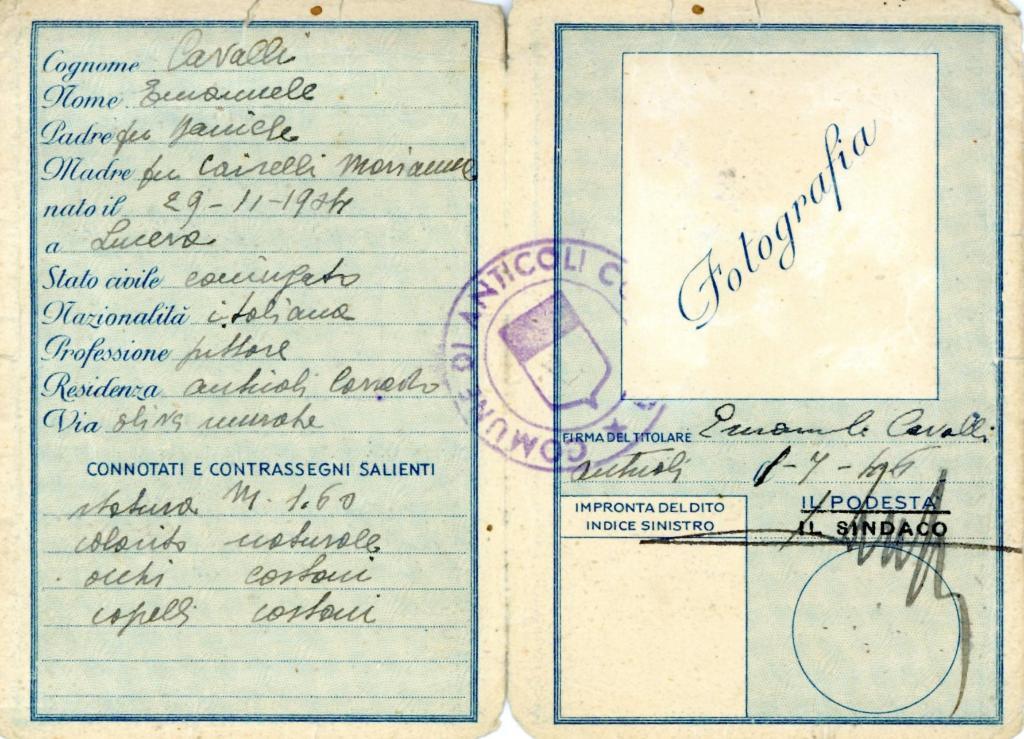 Cognome Cavalli
Nome Emanuele
Padre fu Daniele
Madre fu Cairelli Marianna
nato il 29-11-1904
a Lucera
Stato civile coniugato
Nazionalità italiana
Professione pittore
Residenza anticoli Corrado
Via oliva murata
CONNOTATI E CONTRASSEGNI SALIENTI
statura M. 1.60
colorito naturale
occhi castani
capelli castani
COMUNE DI ANTICOLI CO
Fotografia
FIRMA DEL TITOLARE Emanuele Cavalli
anticoli 1-7-46
IMPRONTA DEL DITO
INDICE SINISTRO
IL PODESTÀ
IL SINDACO